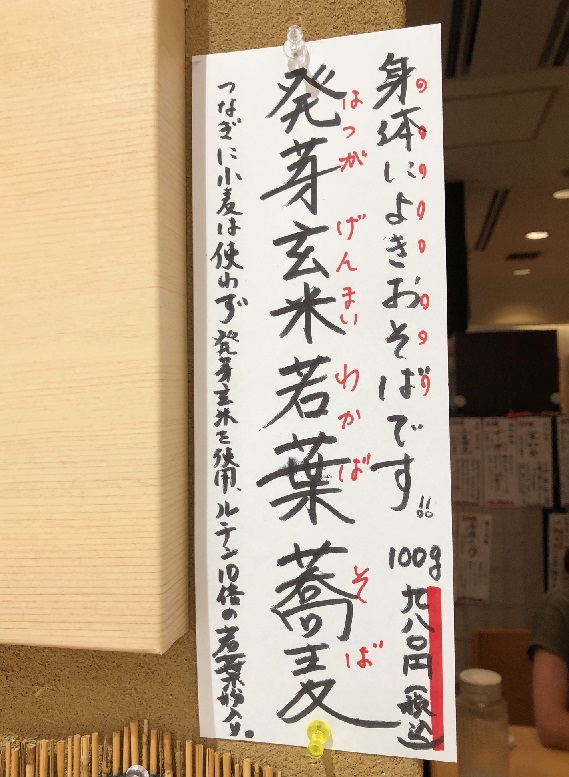 身体によきおそばです!!
100g 九八〇円(税込)
はつが げんまい わかば そば
発芽玄米若葉蕎麦
つなぎに小麦は使わず 発芽玄米を使用、ルテン10倍の若葉粉入り。